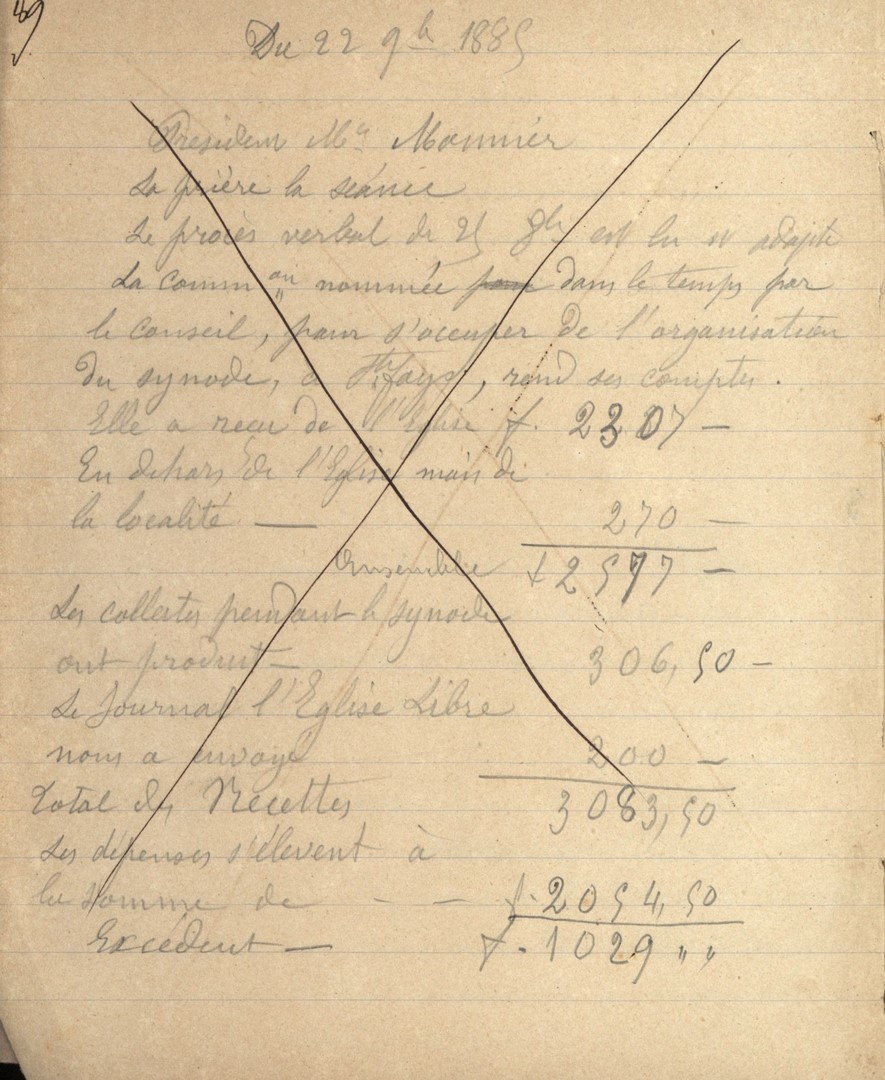 49
Du 22 9b 1885
Président Mr Monnier
La prière la séance
Le procès verbal de 25 8b est lu et adopté
La comm on nommée pour dans le temps par
le conseil, pour s'occuper de l'organisation
du synode, à Ste foy, rend ses comptes.
Elle a recu de l'Eglise f. 2307 —
En dehors de l'Eglise mais de
la localité — 270 —
Ensemble f 2577 —
Les collectes pendant le synode
ont produit — 306,50 —
Le Journal l'Eglise Libre
nous a envoyé 200 —
Total des Recettes 3083,50
Les dépenses s'élèvent à
la somme de - - f. 2054,50
Excédent — f. 1029 " "